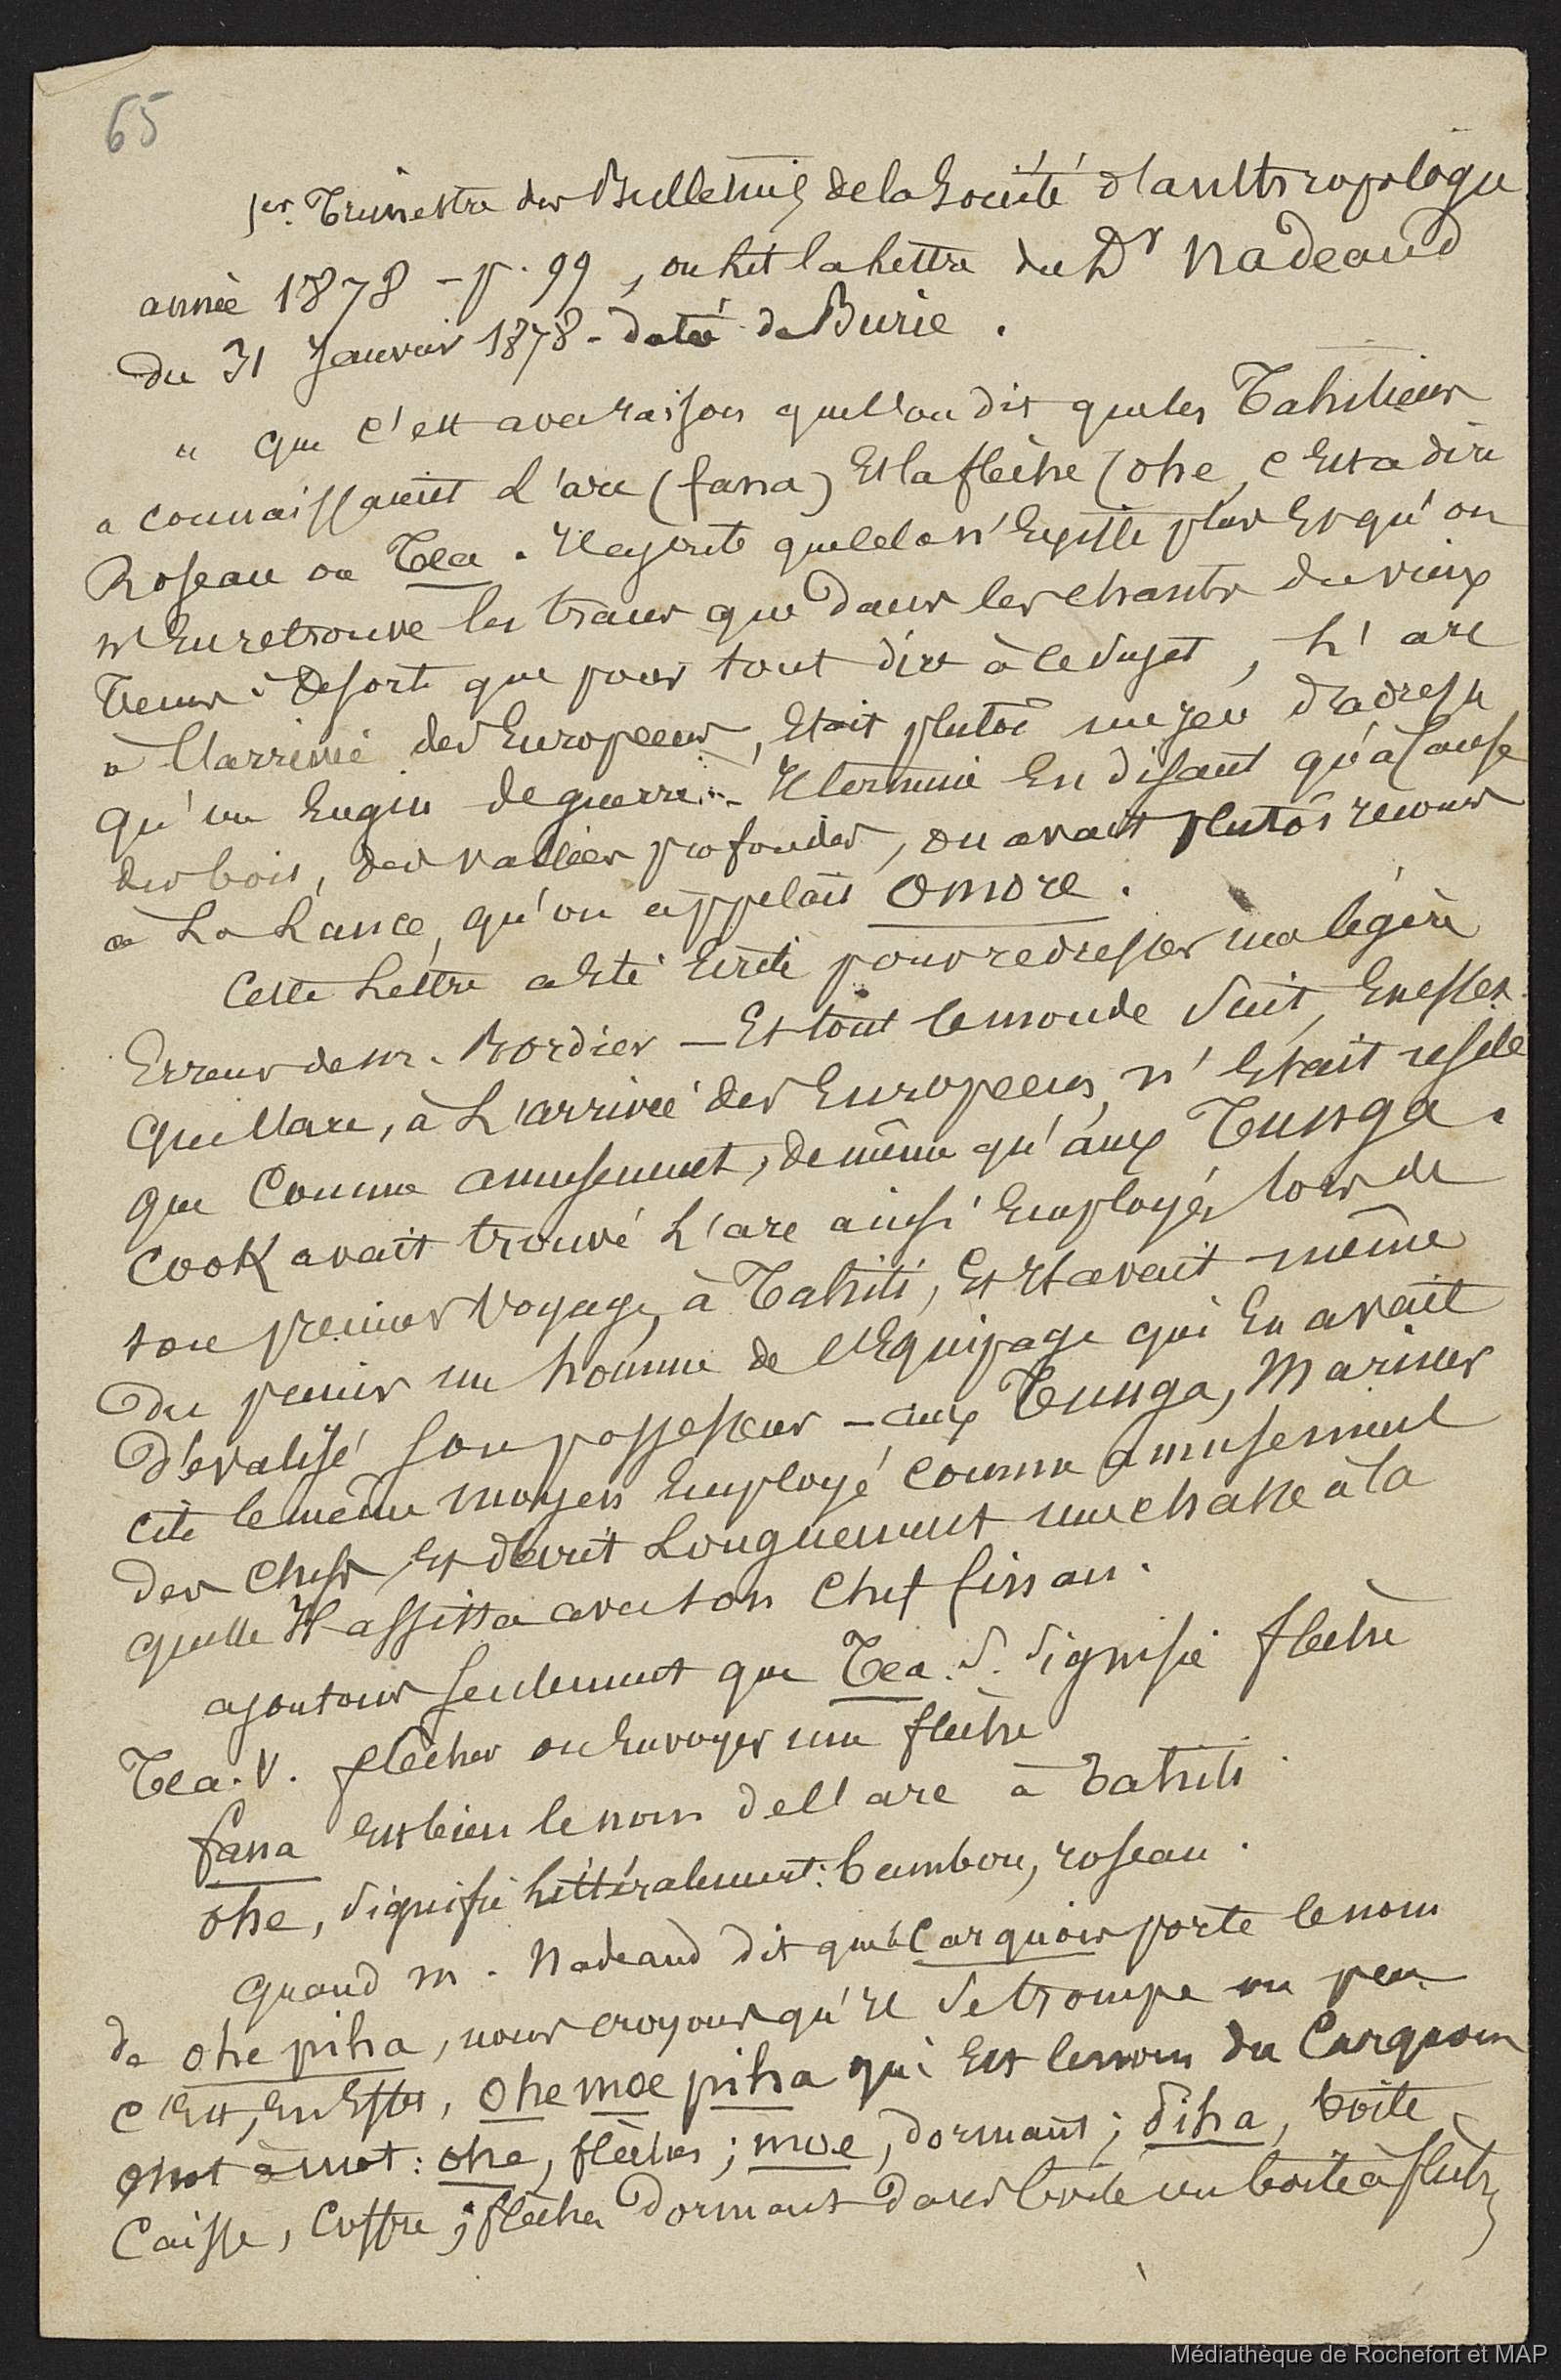 65
1er. Trimestre des Bulletins de la Société d'anthropologie
année 1878 - p. 99, on lit la lettre du Dr Nadeaud
du 31 Janvier 1878 - datée de Burie.
" que c'est avec raison que l'on dit que les Tahitiens
" connaissaient l'arc (fana) Et la flèche (ohe, c'Est a dire
Roseau ou Tea. Il ajoute que cela n'Existe plus Et qu'on
n'En retrouve les traces que dans les chants du vieux
Temps. De sorte que pour tout dire à ce sujet, l'arc
à l'arrivée des Européens, Etait plutôt un jeu d'adresse
qu'un Engin de guerre. - Il termine En disant qu'à cause
des bois, des vallées profondes, on avait plutôt recours
à La Lance, qu'on appelait omore.
Cette Lettre a Eté Ecrite pour redresser une légère
Erreur de mr. Bordier - Et tout le monde Sait, En effet
que l'arc, à L'arrivée des Européens, n'Etait usité
que comme amusement, de même qu'aux Tunga.
Cook avait trouvé L'arc ainsi Employé, lors de
son premier Voyage, à Tahiti, Et Il avait même
du punir un homme de l'Equipage qui En avait
dévalisé son possesseur - aux Tunga, Mariner
cite le même moyen Employé comme amusement
des Chefs, Et décrit Longuement une chasse à la
quelle Il assista avec son Chef finsau.
ajoutons seulement que Tea. S. Signifie flèche
Tea. V. flècher ou Envoyer une flèche
fana Est bien le nom de l'arc à Tahiti.
ohe, Signifie Littéralement: bambou, roseau.
Quand m. Nadeaud dit que le Carquois porte le nom
de ohe piha, nous croyons qu'Il Se trompe un peu
c'Est, En Effet, ohe moe piha qui Est le nom du Carquois
mot à mot: ohe, flèches; moe, dormant; piha, boite
Caisse, Coffre; flèches Dormant Dans boite ou boite à flèches
Médiathèque de Rochefort et MAP